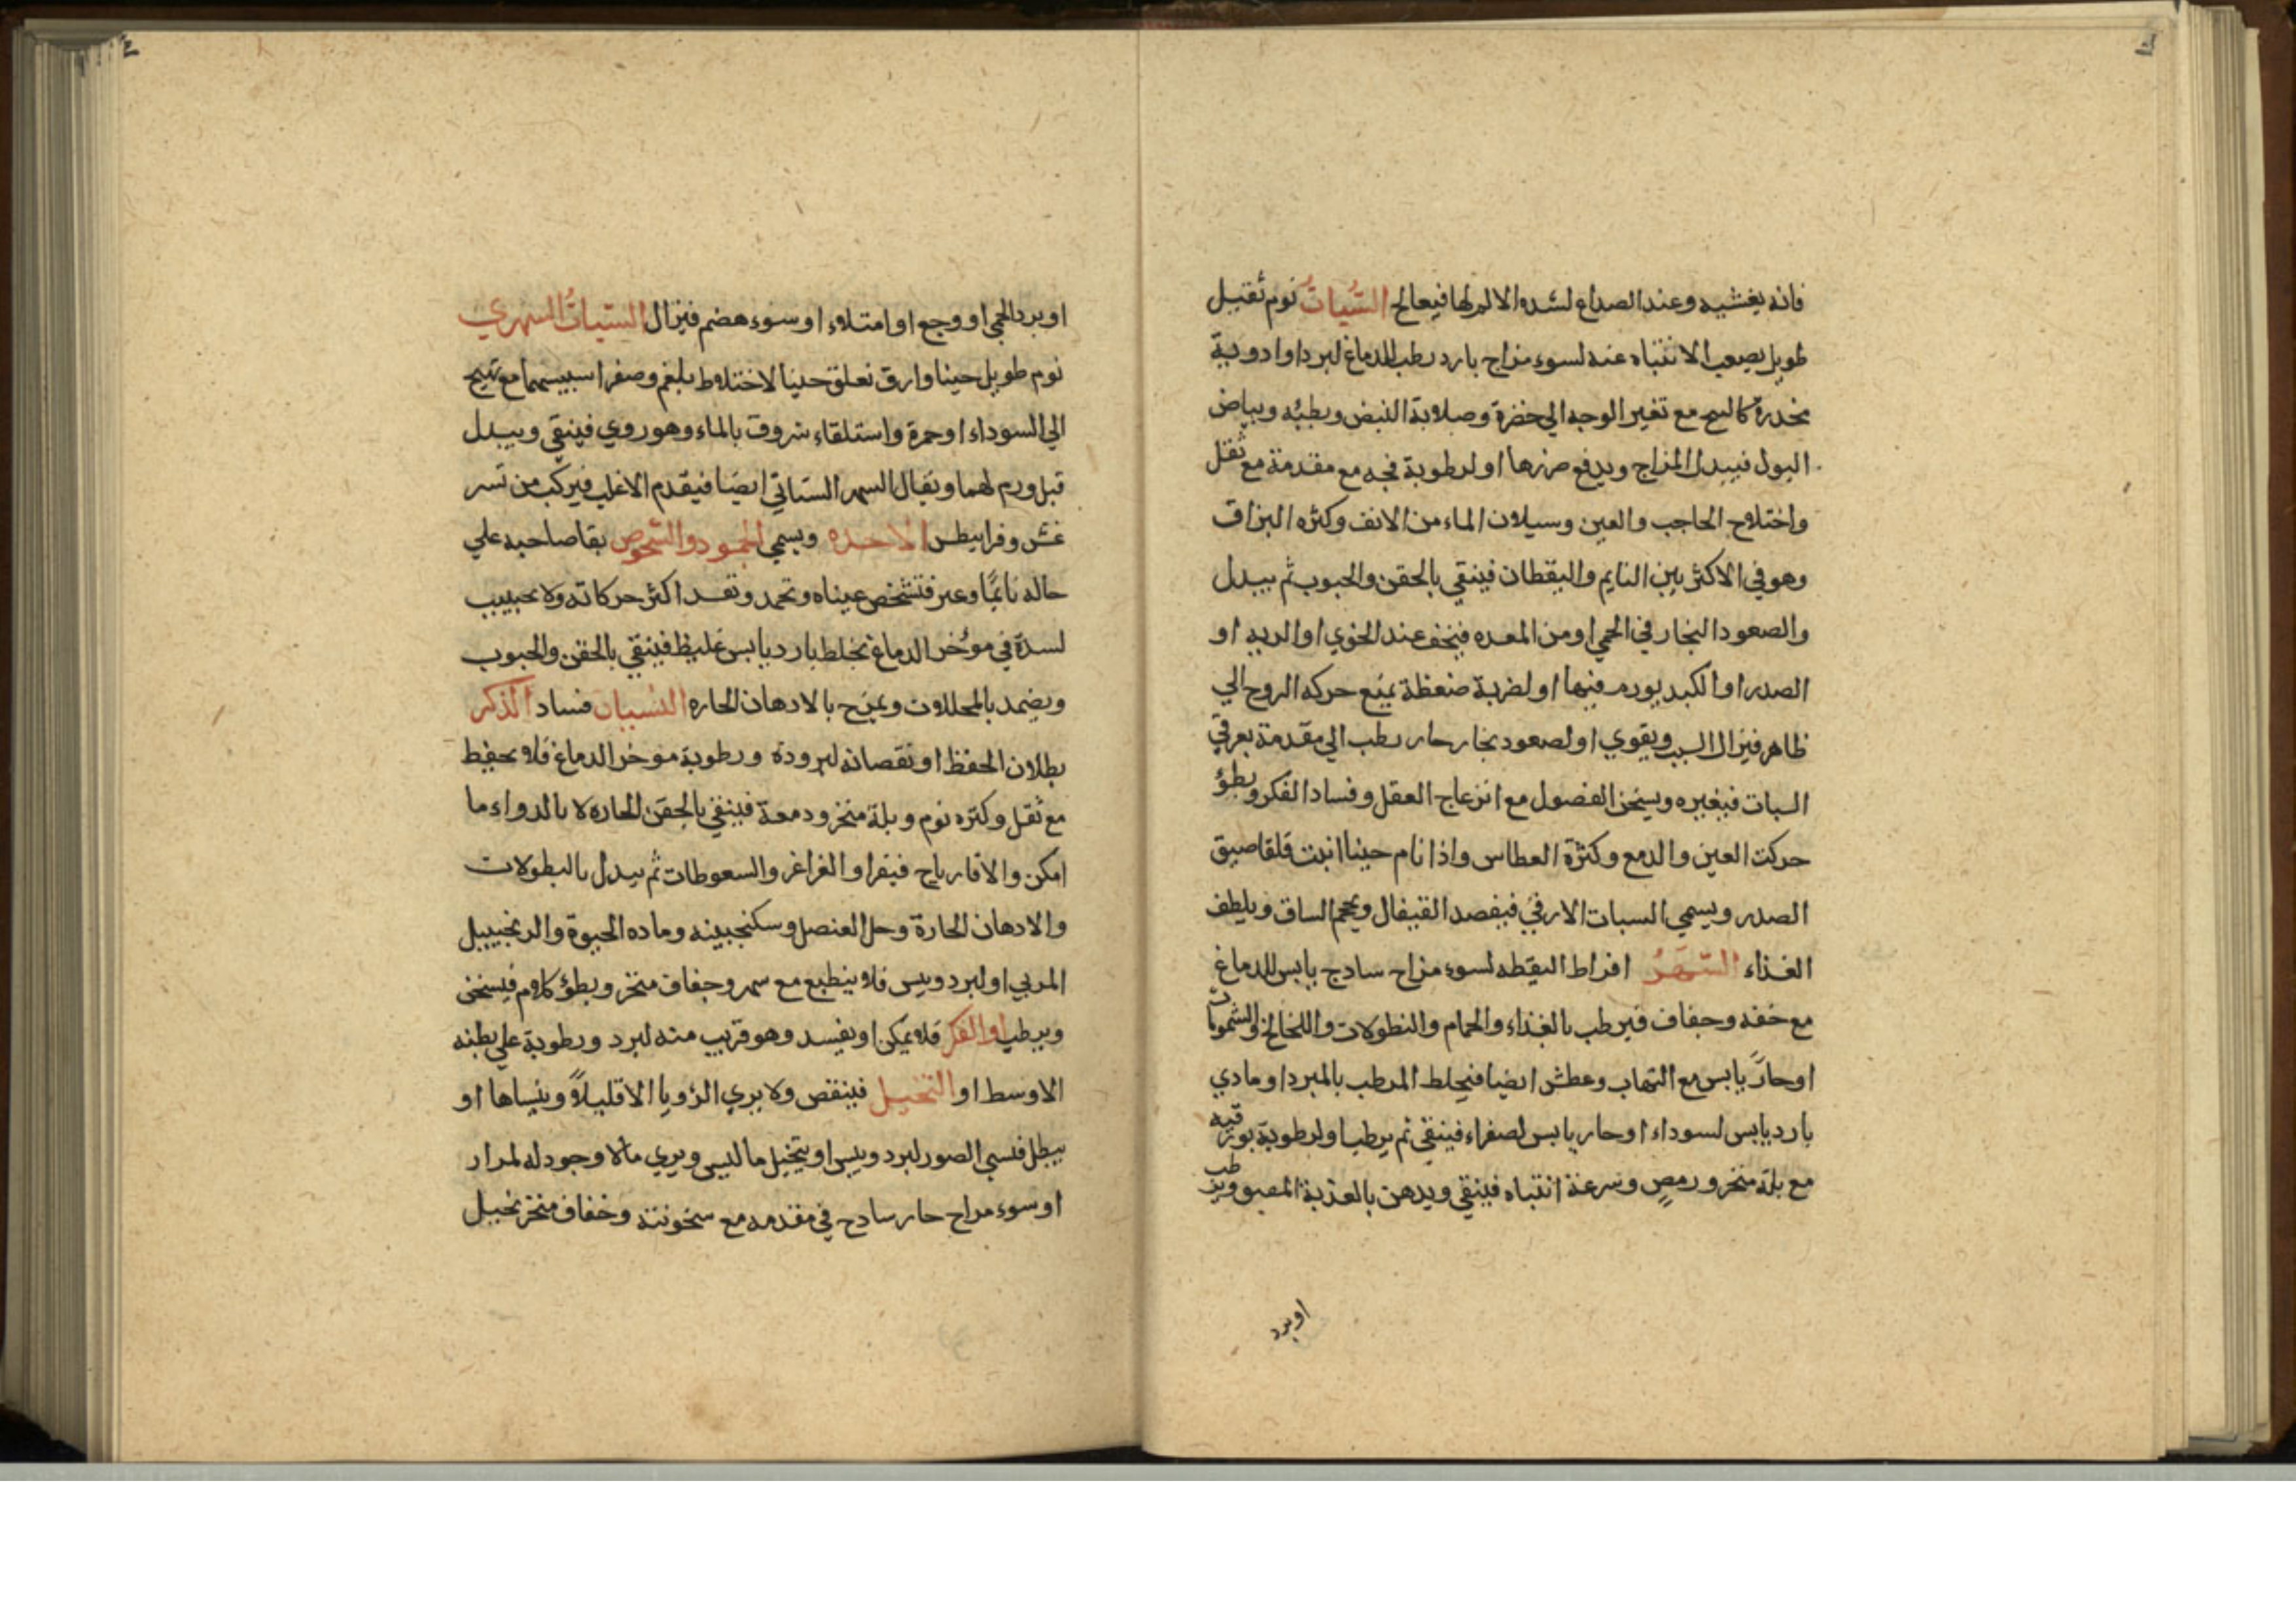 فانه يغشيه وعند الصداع لشده الالم لها فيعالج السُّباتُ نوم ثقيل
طويل يصعب الانتباه عنه لسوء مزاج بارد رطب للدماغ لبرد او ادوية
مخدرة مع تغير الوجه الي خضرة وصلابة النبض وبطئه وبياض
البول فيبدل المزاج ويدفع ضررها او لرطوبة فجه مع مقدمة مع ثقل
واختلاج الحاجب والعين وسيلان الماء من الانف وكثره البزاق
وهو في الاكثر بين النايم واليقظان فينقي بالحقن والحبوب ثم يبدل
والصعود البخار في الحمي او من المعده فيخف عند الخوي او الريه او
الصدر او الكبد بورم فيها او لضربة ضغطة يمنع حركه الروح الي
ظاهر فيزال السبب ويقوي او لصعود بخار حار رطب الي مقدمة بعرقي
السبات فيغيره ويسخن الفصول مع انزعاج العقل وفساد الفكر وبطؤ
حركت العين والدمع وكثرة العطاس واذا نام حينا انبت قلقا ضيق
الصدر ويسمي السبات الارقي فيفصد القيفال ويحجم الساق ويلطف
الغذاء السَّهَرُ افراط اليقظه لسوء مزاج سادج يابس للدماغ
مع خفه وجفاف فيرطب بالغذاء والحمام والنطولات واللخالخ والشمومات
او حارّ يابس مع التهاب وعطش ايضا فيخلط المرطب بالمبرد او مادي
بارد يابس لسوداء او حار يابس لصفراء فينقي ثم يرطب او لرطوبة بورقيه
مع بلة منخر ورمص وسرعة انتباه فينقي ويدهن بالعذبة ويرطب
اوبرد
او برد الحمي او وجع او امتلاء او سوء هضم فيزال السُّباتُ السهري
نوم طويل حينا وارق حينا لاختلاط بلغم وصفرا مع تهيج
الي السوداء او حمرة واستلقاء شروق بالماء وهو روي فينقي ويبدل
قبل ورم لهما ويقال السهر السباتي ايضا فيقدم الاغلب فيركب من
وقرانيطس الاخذه ويسمي الجمود والشخوص بقا صاحبه علي
حاله نايمًا فتشخص عيناه وتجمد وتفسد اكثر حركاته ولا يجيب
لسدة في مؤخر الدماغ بخلط بارد يابس غليظ فينقي بالحقن والحبوب
ويضمد بالمحللات ويمرخ بالادهان الحاره النسيان فساد الذكر
بطلان الحفظ او نقصانه لبرودة ورطوبة موخر الدماغ فلا يحفظ
مع ثقل وكثره نوم وبلة منخر ودمعة فينقي بالحقن الحاره لا بالدواء ما
امكن والا فارياج فيقرا والغراغر والسعوطات ثم يبدل بالنطولات
والادهان الحارة وخل العنصل وسكنجبينه والزنجبيل
المربي او لبرد ويبس فلا ينطبع مع سهر وجفاف منخر وبطؤ كلام فيسخن
ويرطب او الفكر فلا يمكن او يفسد وهو قريب منه لبرد ورطوبة علي بطنه
الاوسط او التخيل فينقص ولا يري الرؤيا الا قليلاً وينساها او
يبطل فنسي الصور لبرد ويبس او يتخيل ما ليس ويري مالا وجود له لمرار
او سوء مزاج حار سادج في مقدمه مع سخونته وخفاف منخر تخيل